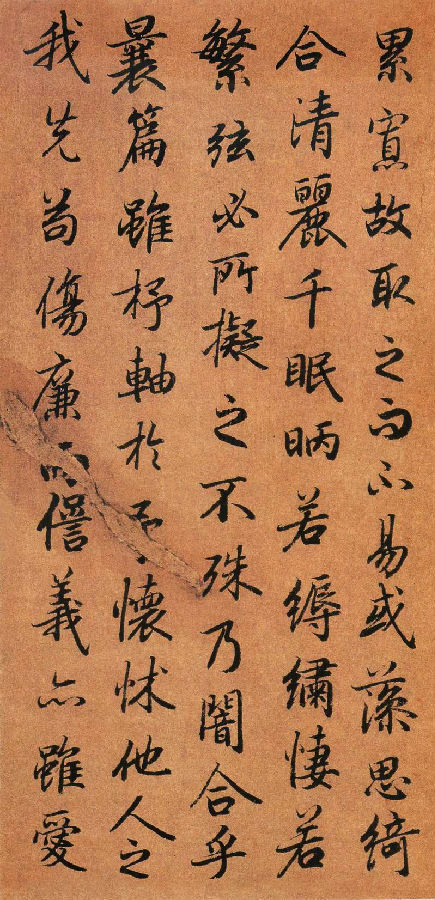 累寔故取之而不易或藻思綺
合清麗千眠昞若縟繡悽若
繁弦必所擬之不殊乃闇合乎
曩篇雖杼軸於予懷怵他人之
我先苟傷廉而諐義亦雖愛